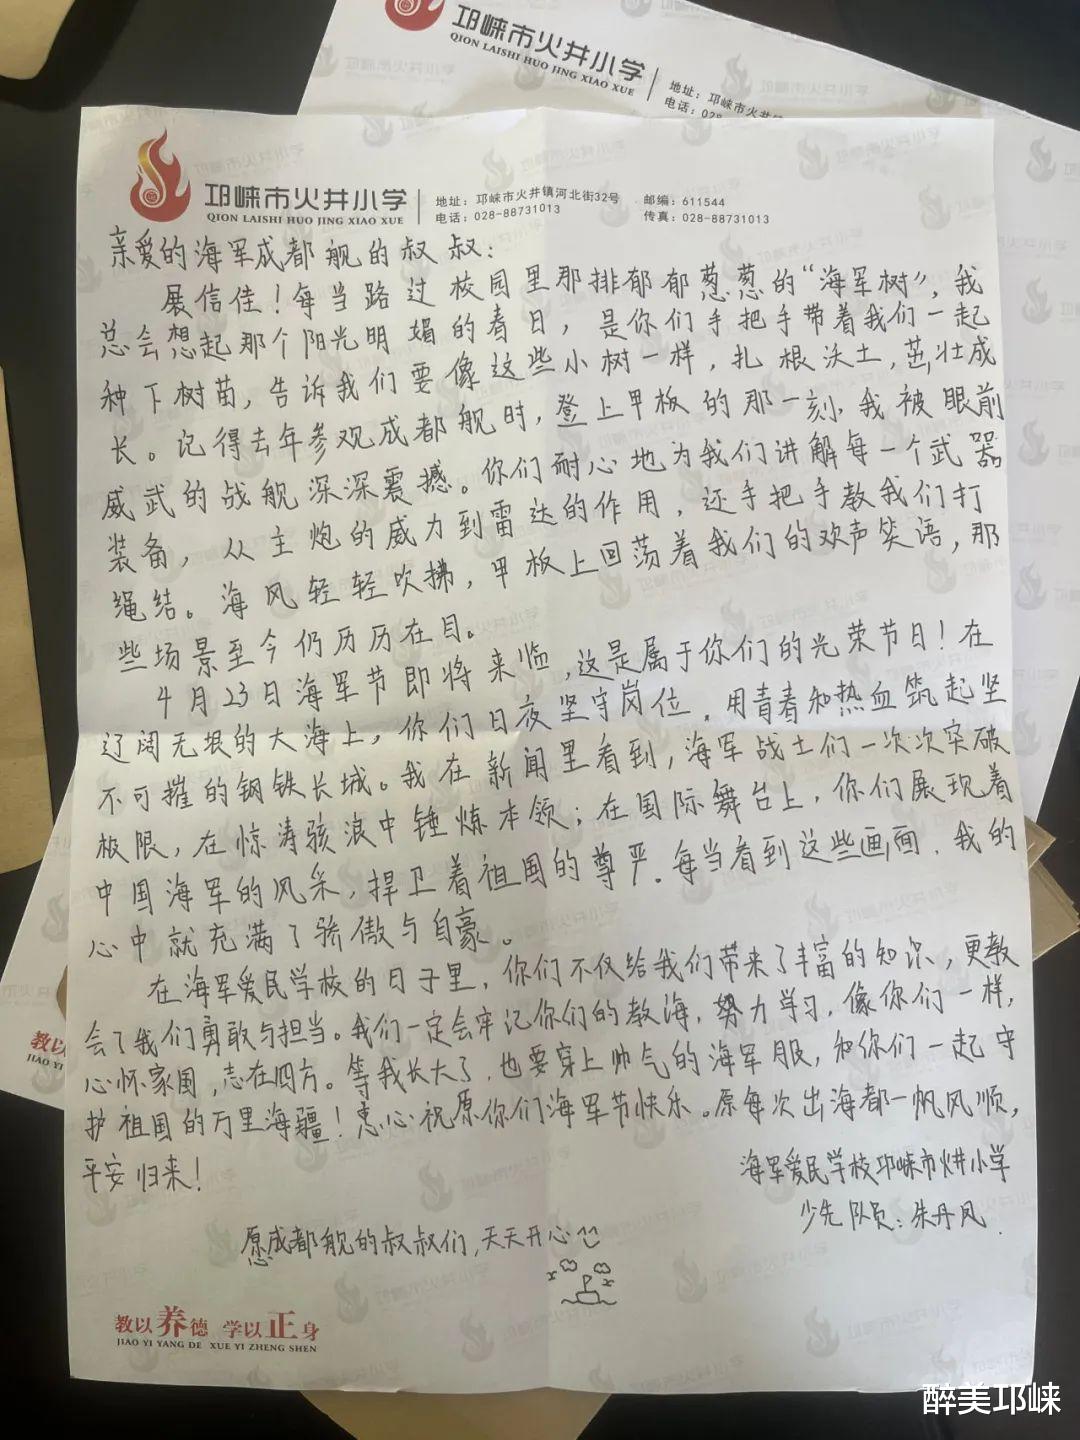 邛崃市火井小学
QION LAISHI HUO JING XIAO XUE
地址：邛崃市火井镇
电话：028
邛崃市火井小学
QION LAISHI HUO JING XIAO XUE
地址：邛崃市火井镇河北街32号 邮编：611544
电话：028-88731013 传真：028-88731013
亲爱的海军成都舰的叔叔：
展信佳！每当路过校园里那排郁郁葱葱的“海军树”，我
总会想起那个阳光明媚的春日，是你们手把手带着我们一起
种下树苗，告诉我们要像这些小树一样，扎根沃土，茁壮成
长。记得去年参观成都舰时，登上甲板的那一刻，我被眼前
威武的战舰深深震撼。你们耐心地为我们讲解每一个武器
装备，从主炮的威力到雷达的作用，还手把手教我们打
绳结。海风轻轻吹拂，甲板上回荡着我们的欢声笑语，那
些场景至今仍历历在目。
4月23日海军节即将来临，这是属于你们的光荣节日！在
辽阔无垠的大海上，你们日夜坚守岗位，用青春和热血筑起坚
不可摧的钢铁长城。我在新闻里看到，海军战士们一次次突破
极限，在惊涛骇浪中锤炼本领；在国际舞台上，你们展现着
中国海军的风采，捍卫着祖国的尊严。每当看到这些画面，我的
心中就充满了骄傲与自豪。
在海军爱民学校的日子里，你们不仅给我们带来了丰富的知识，更教
会了我们勇敢与担当。我们一定会牢记你们的教诲，努力学习，像你们一样，
心怀家国，志在四方。等我长大了，也要穿上帅气的海军服，和你们一起守
护祖国的万里海疆！衷心祝原你们海军节快乐。原每次出海都一帆风顺，
平安归来！
海军爱民学校邛崃市火井小学
少先队员：朱丹凤
愿成都舰的叔叔们，天天开心
教以养德 学以正身
JIAO YI YANG DE XUE YI ZHENG SHEN
教以
JIAO YI
醉美邛崃